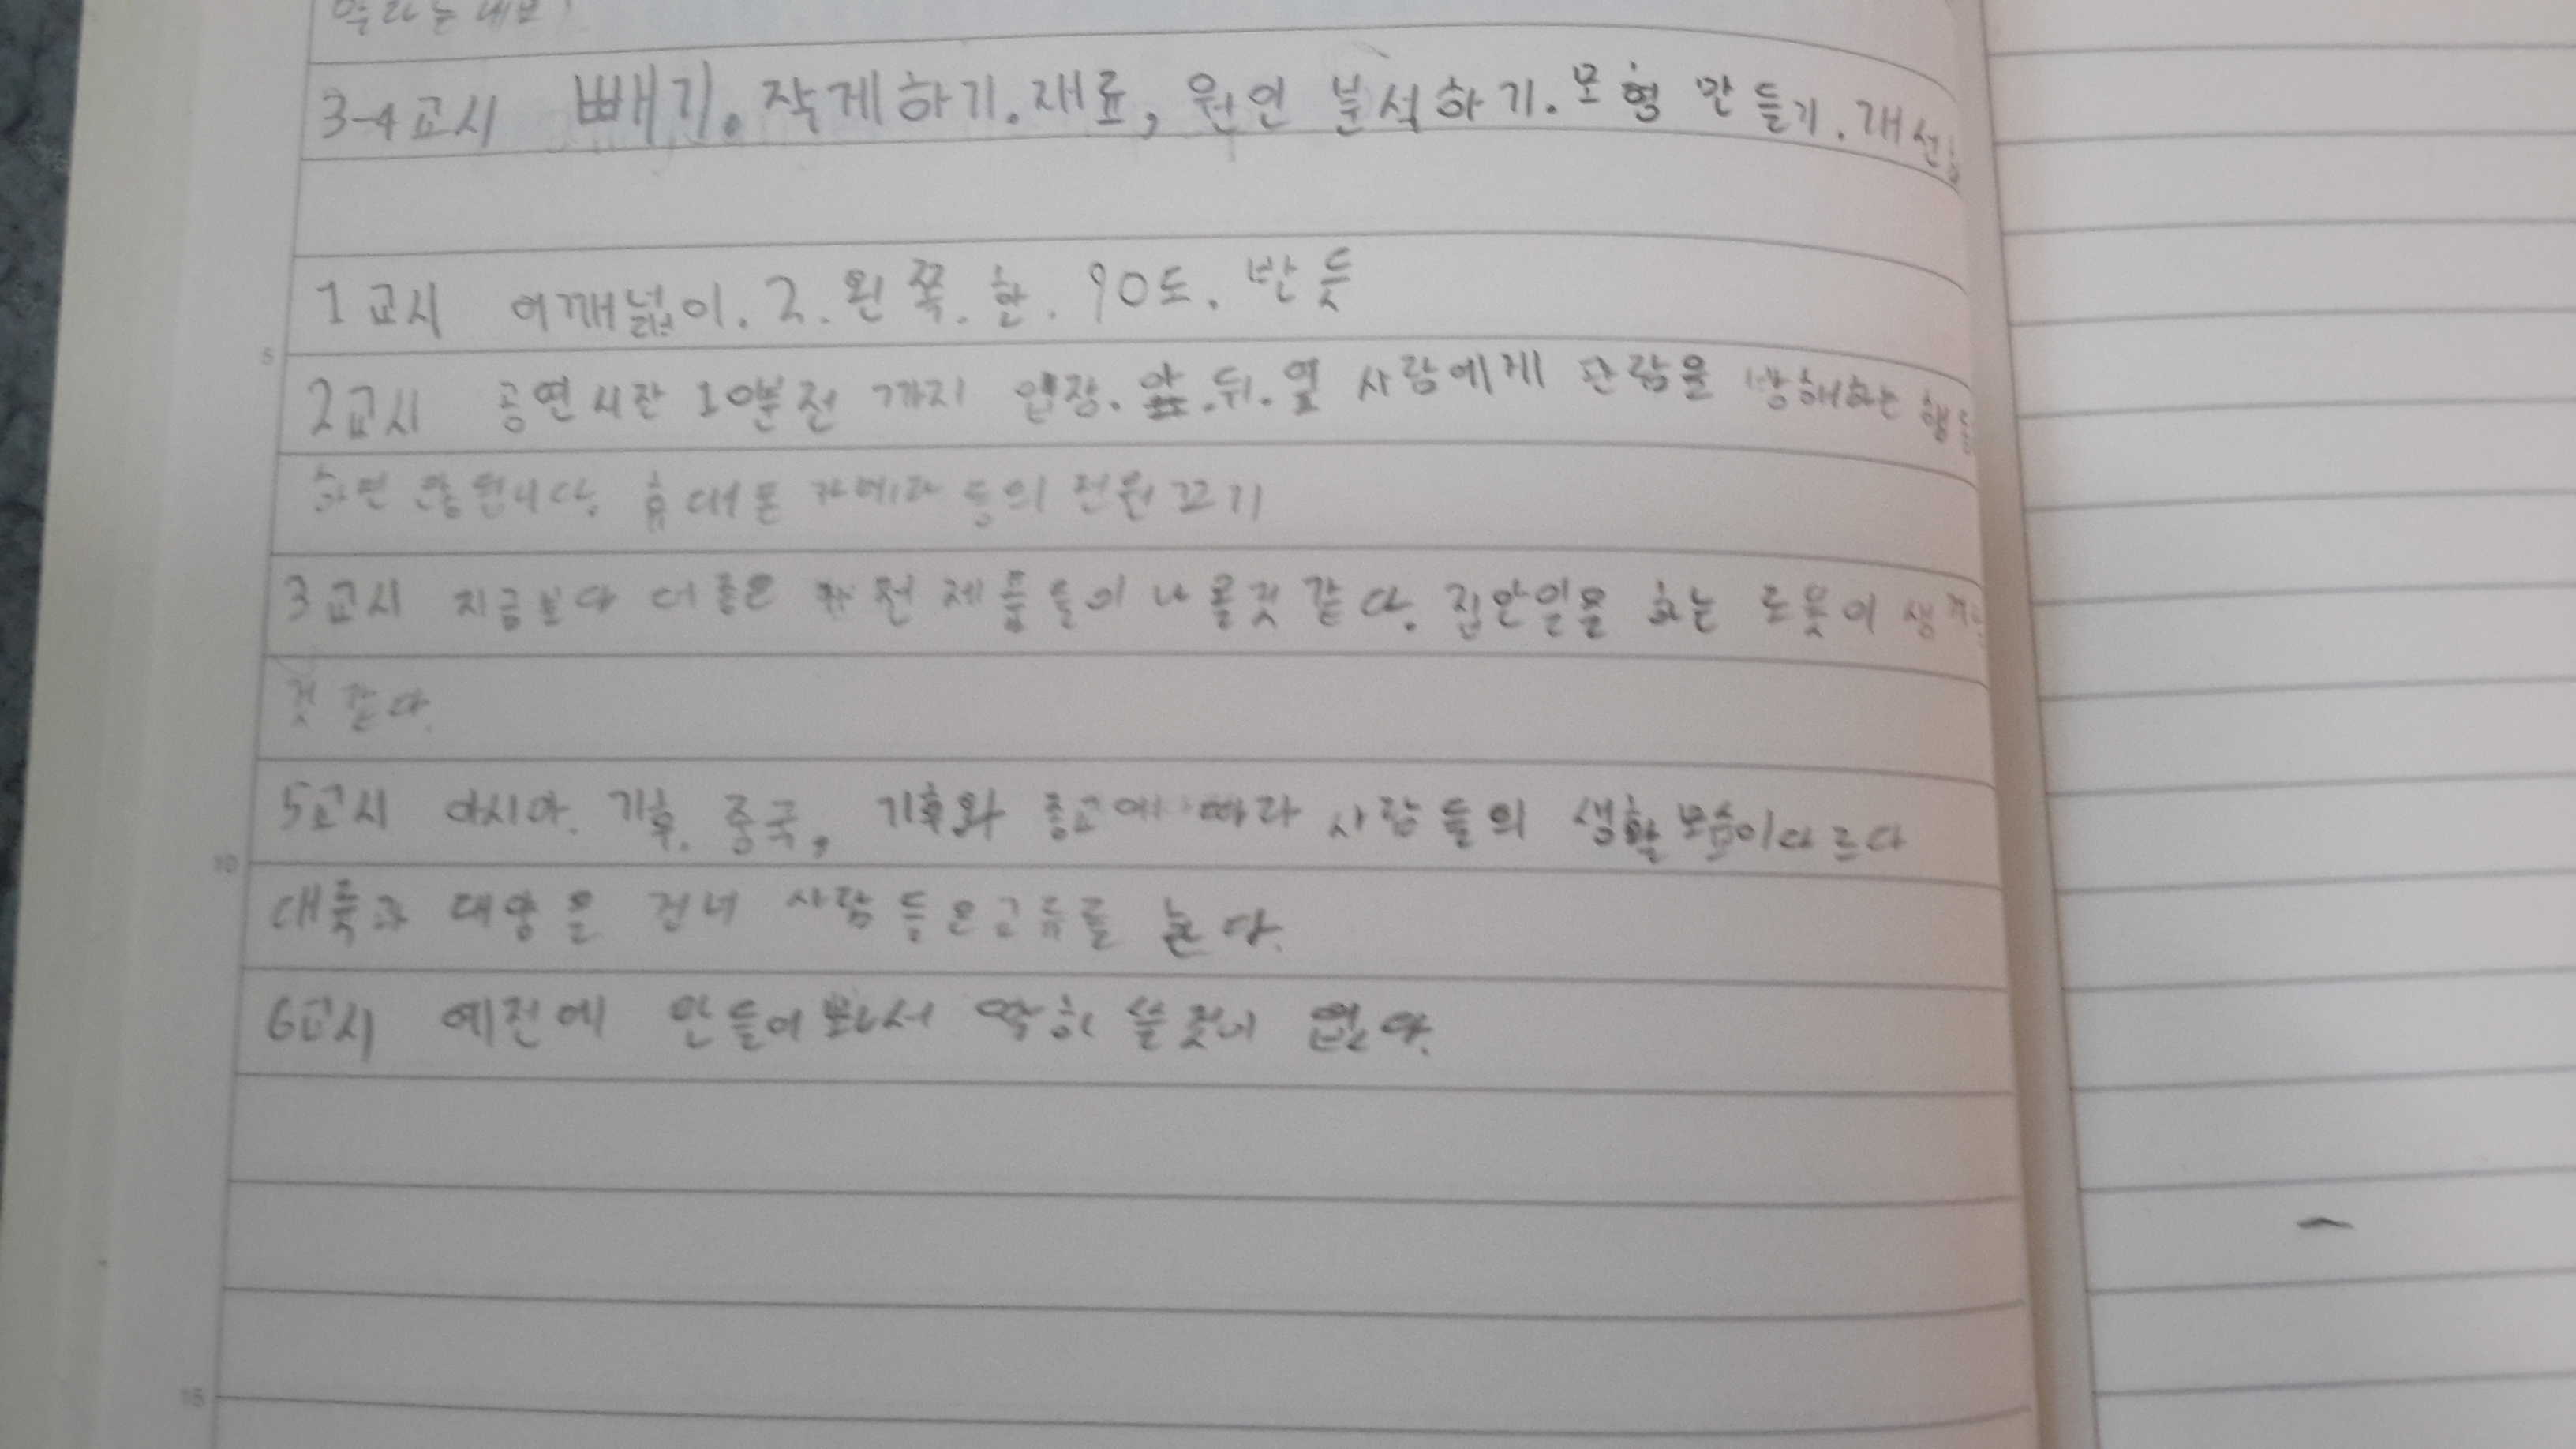 3-4교시 빼기. 작게하기. 재료, 원인 분석하기. 모형 만들기. 개선
1교시 어깨넓이. 2. 왼쪽. 한. 90도. 반듯
2교시 공연시작 10분전 까지 입장. 앞. 뒤. 옆 사람에게 관람을 방해하는 행동
하면 안됩니다. 휴대폰 카메라 등의 전원 끄기
3교시 지금보다 더 좋은 가전 제품들이 나올것 같다. 집안일을 하는 로봇이 생기는
것 같다.
5교시 아시아. 기후. 중국, 기후와 종교에 따라 사람들의 생활모습이다르다
대륙과 대양을 건너 사람들은교류를 한다.
6교시 예전에 만들어봐서 딱히 쓸것이 없다.